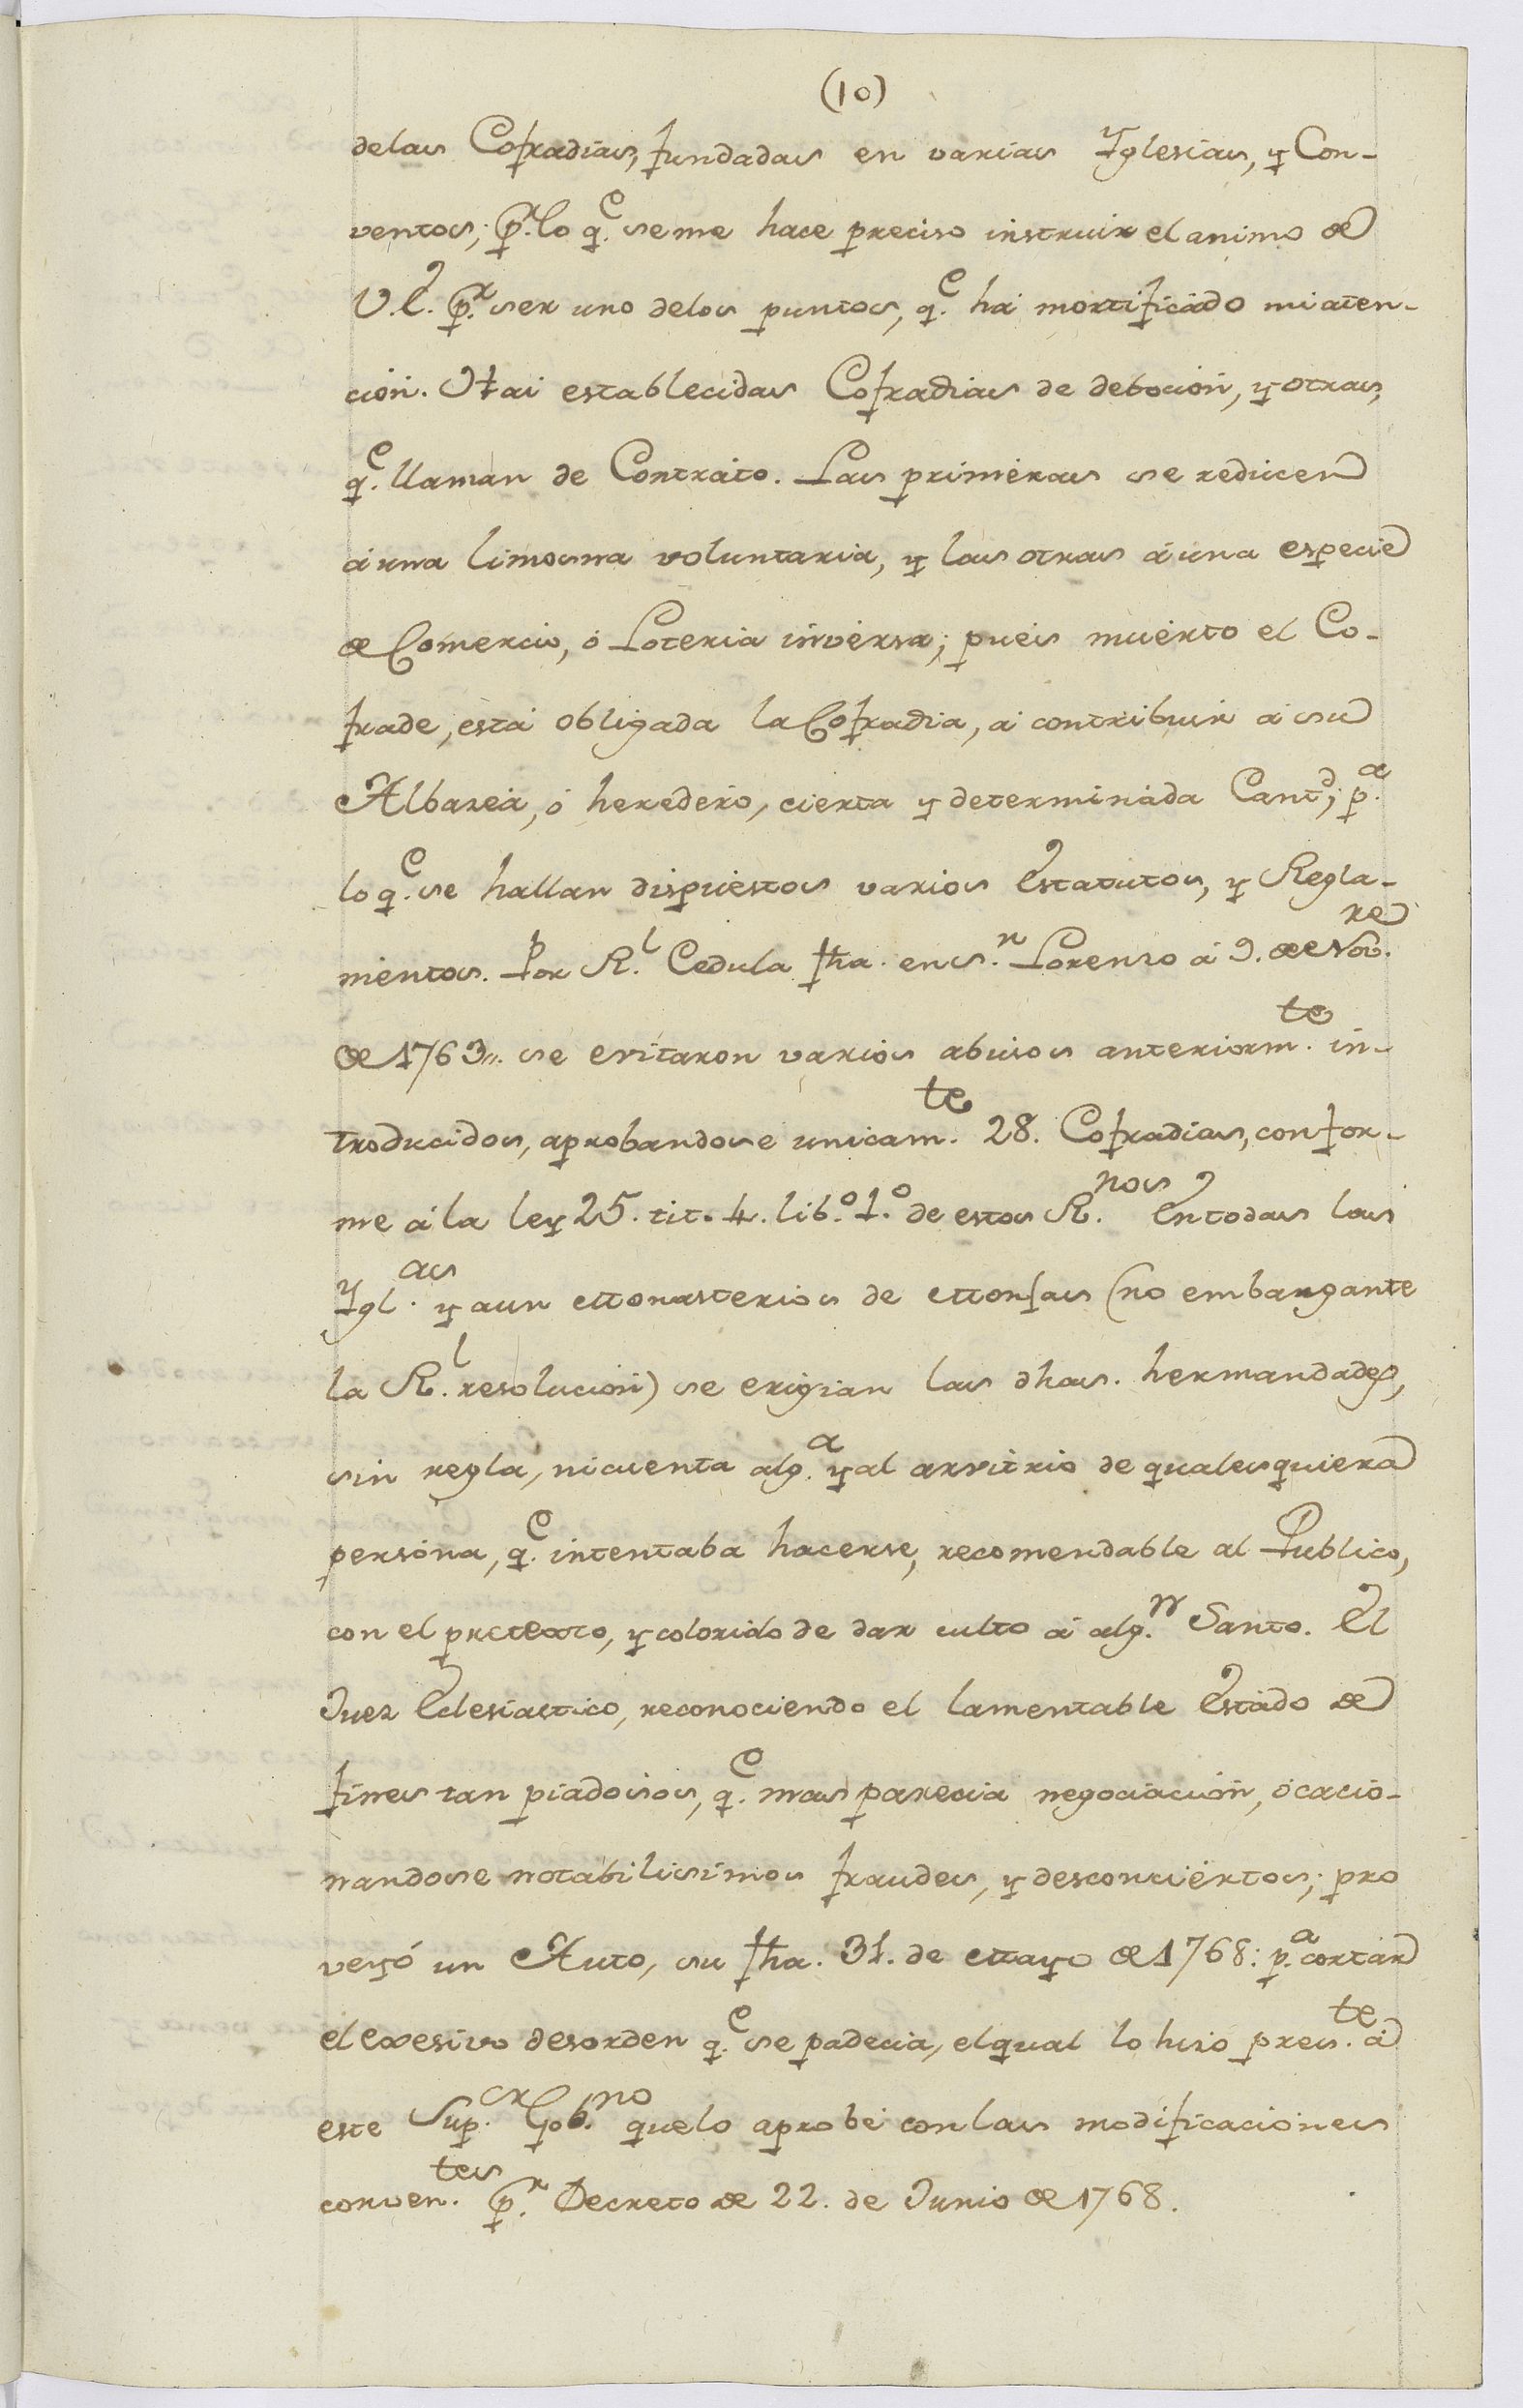 (10)
delas Cofradias, fundadas en varias Yglesias, y Con-
ventos; p.r lo q.e seme hace preciso instruir el animo de
V.E. p.r ser uno delos puntos, q.e há mortificádo mi aten-
ción. Hai establecidas Cofradias de deboción, y otras,
q.e llaman de Contráto. Las priméras se redúcen
á una limosna voluntaria, y las otras á una especie
de Comercio, ó Loteria invérsa; púes muérto el Co-
frade, está obligada la Cofradia, á contribuir á su
Albaséa, ó heredéro, cierta y determináda Cant.d; p.a
lo q.e se hallan dispuéstos varios Estatutos, y Regla-
mentos. Por R.l Cedula fha. en S.n Lorenso á 9. de Nov.re
de 1763,,. se evitaron varios abusos anteriorm.te in-
troducidos, aprobandose unicam.te 28. Cofradias, confor-
me á la ley 25. tit. 4. lib.o 1.o de estos R.nos En todas las
Ygl.as y aun Monasterios de Monjas (no embargante
la R.l resolución) se erigian las dhas. hermandades,
sin regla, ni cuenta alg.a y al arvitrio de qualesquiera
persóna, q.e intentaba hacerse, recomendable al Publico,
con el pretexto, y colorido de dar culto á alg.n Santo. El
Juez Eclesiastico, reconociendo el lamentable Estádo de
fines tan piadósos, q.e mas parecia negociación, ócacio-
nandose notabilisimos fraudes, y desconciértos; pro
veyó un Auto, su fha. 31. de Mayo de 1768: p.a cortár
el exesivo desorden q.e se padecia, elqual lo hiso pres.te á
este Sup.or Gob.no quelo aprobé conlas modificaciónes
conven.tes p.r Decreto de 22. de Junio de 1768.